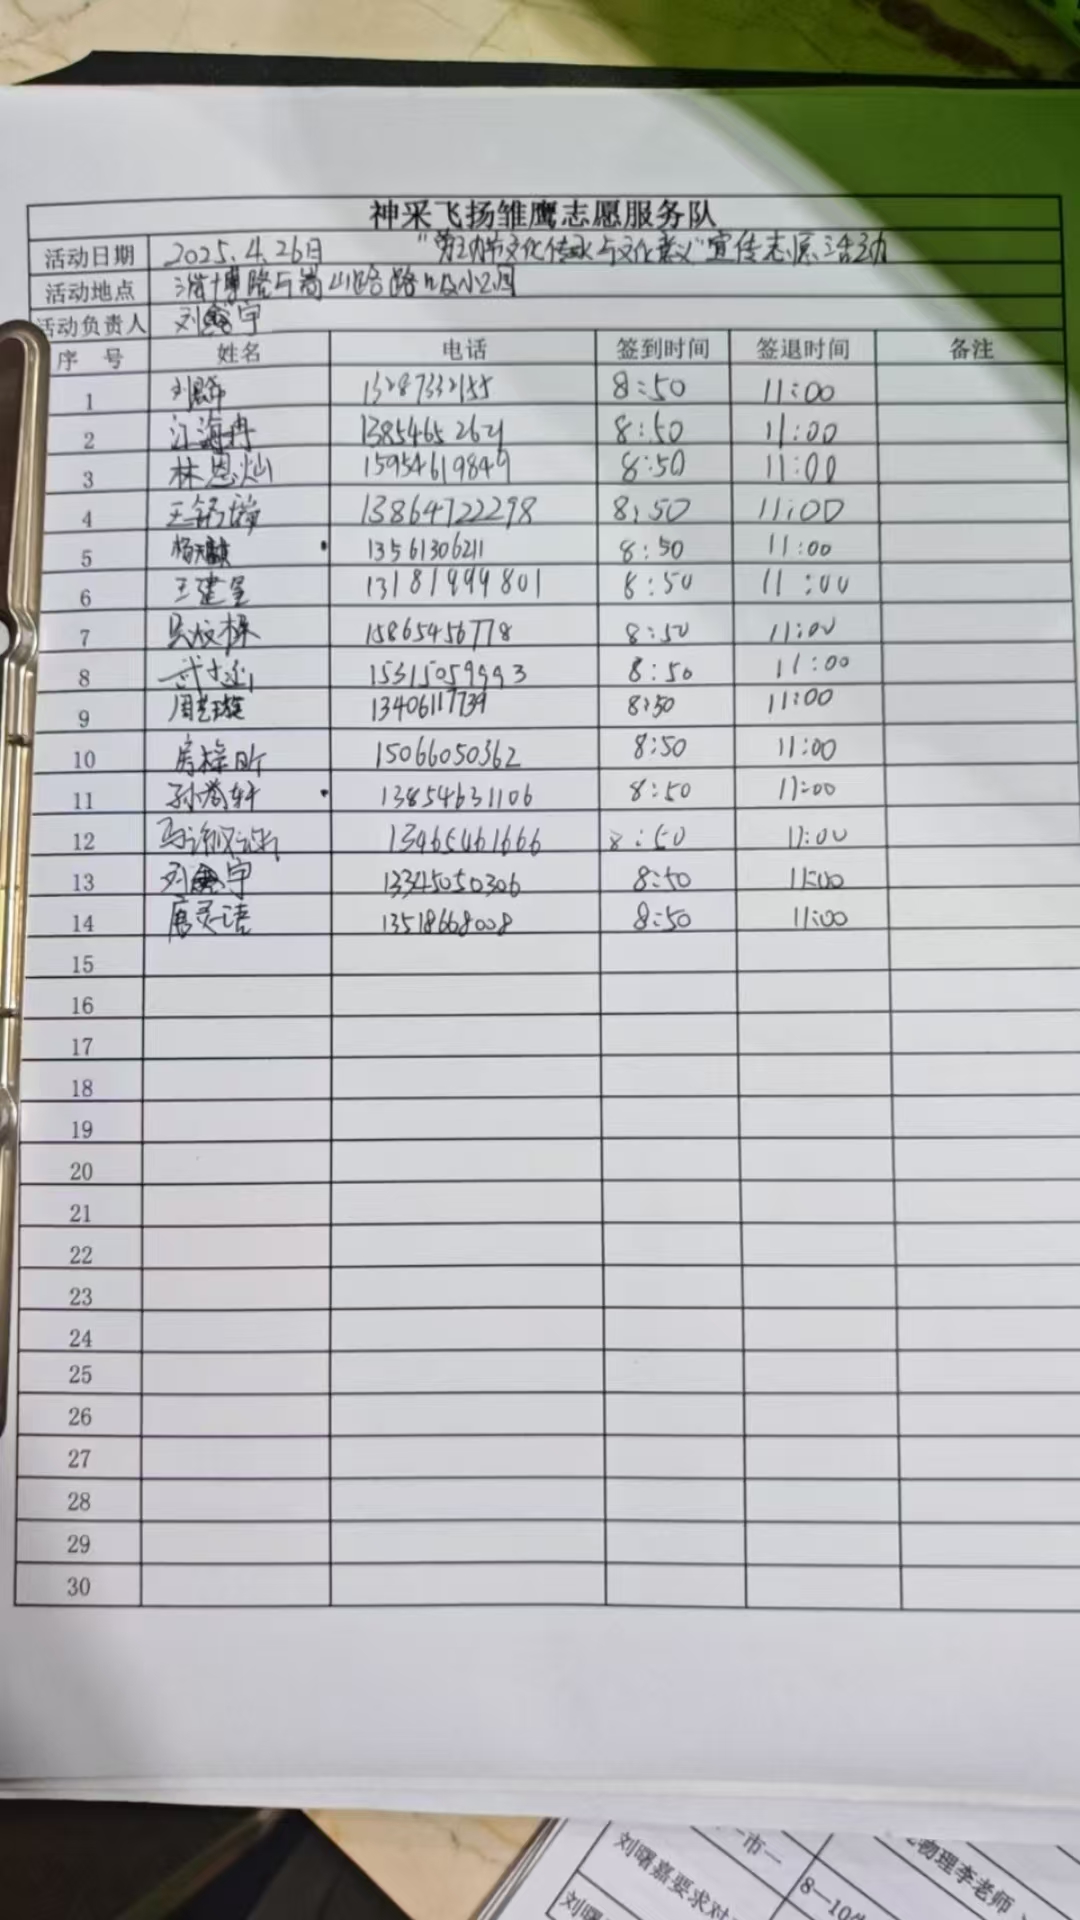 神采飞扬雏鹰志愿服务队
活动日期 2025.4.26日 "劳动节文化传承与文化意义"宣传志愿活动
活动地点 淄博路与嵩山路路口
活动负责人 刘宇
序 号 姓名 电话 签到时间 签退时间 备注
1 13287332155 8:50 11:00
2 江海冉 8:50 11:00
3 林恩灿 15954619849 8:50 11:00
4 13864722298 8:50 11:00
5 13561306211 8:50 11:00
6 王建 13181999801 8:50 11:00
7 15865456778 8:50 11:00
8 15315059993 8:50 11:00
9 周艺璇 13406117739 8:50 11:00
10 15066050362 8:50 11:00
11 轩 13854631106 8:50 11:00
12 13465461666 8:50 11:00
13 刘宇 13345050306 8:50 11:00
14 唐灵语 13518668008 8:50 11:00
15
16
17
18
19
20
21
22
23
24
25
26
27
28
29
30
市一
物理李老师
刘曙嘉要求对
8—10
刘曙